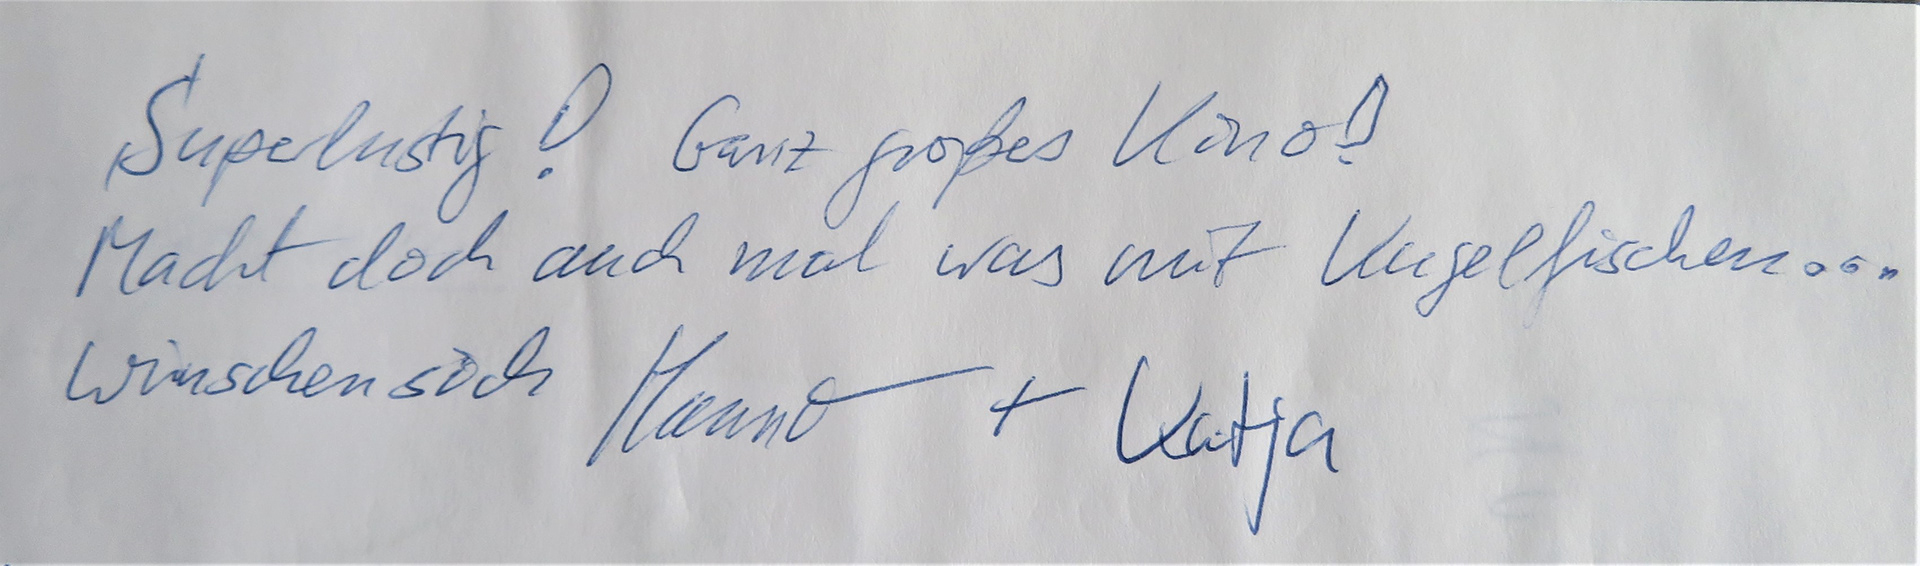 Superlustig! Ganz großes Kino!
Macht doch auch mal was mit Kugelfischen...
wünschen sich Hanno + Katja